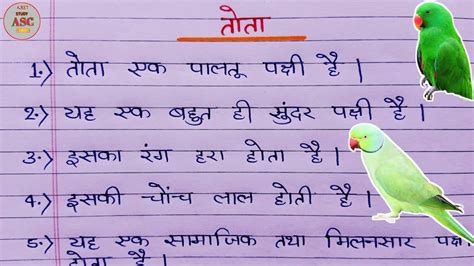 STUDY
ASC
तोता
1.) तोता एक पालतू पक्षी है।
2.) यह एक बहुत ही सुंदर पक्षी है।
3.) इसका रंग हरा होता है।
4.) इसकी चोंच लाल होती है।
5.) यह एक सामाजिक तथा मिलनसार
होता है।